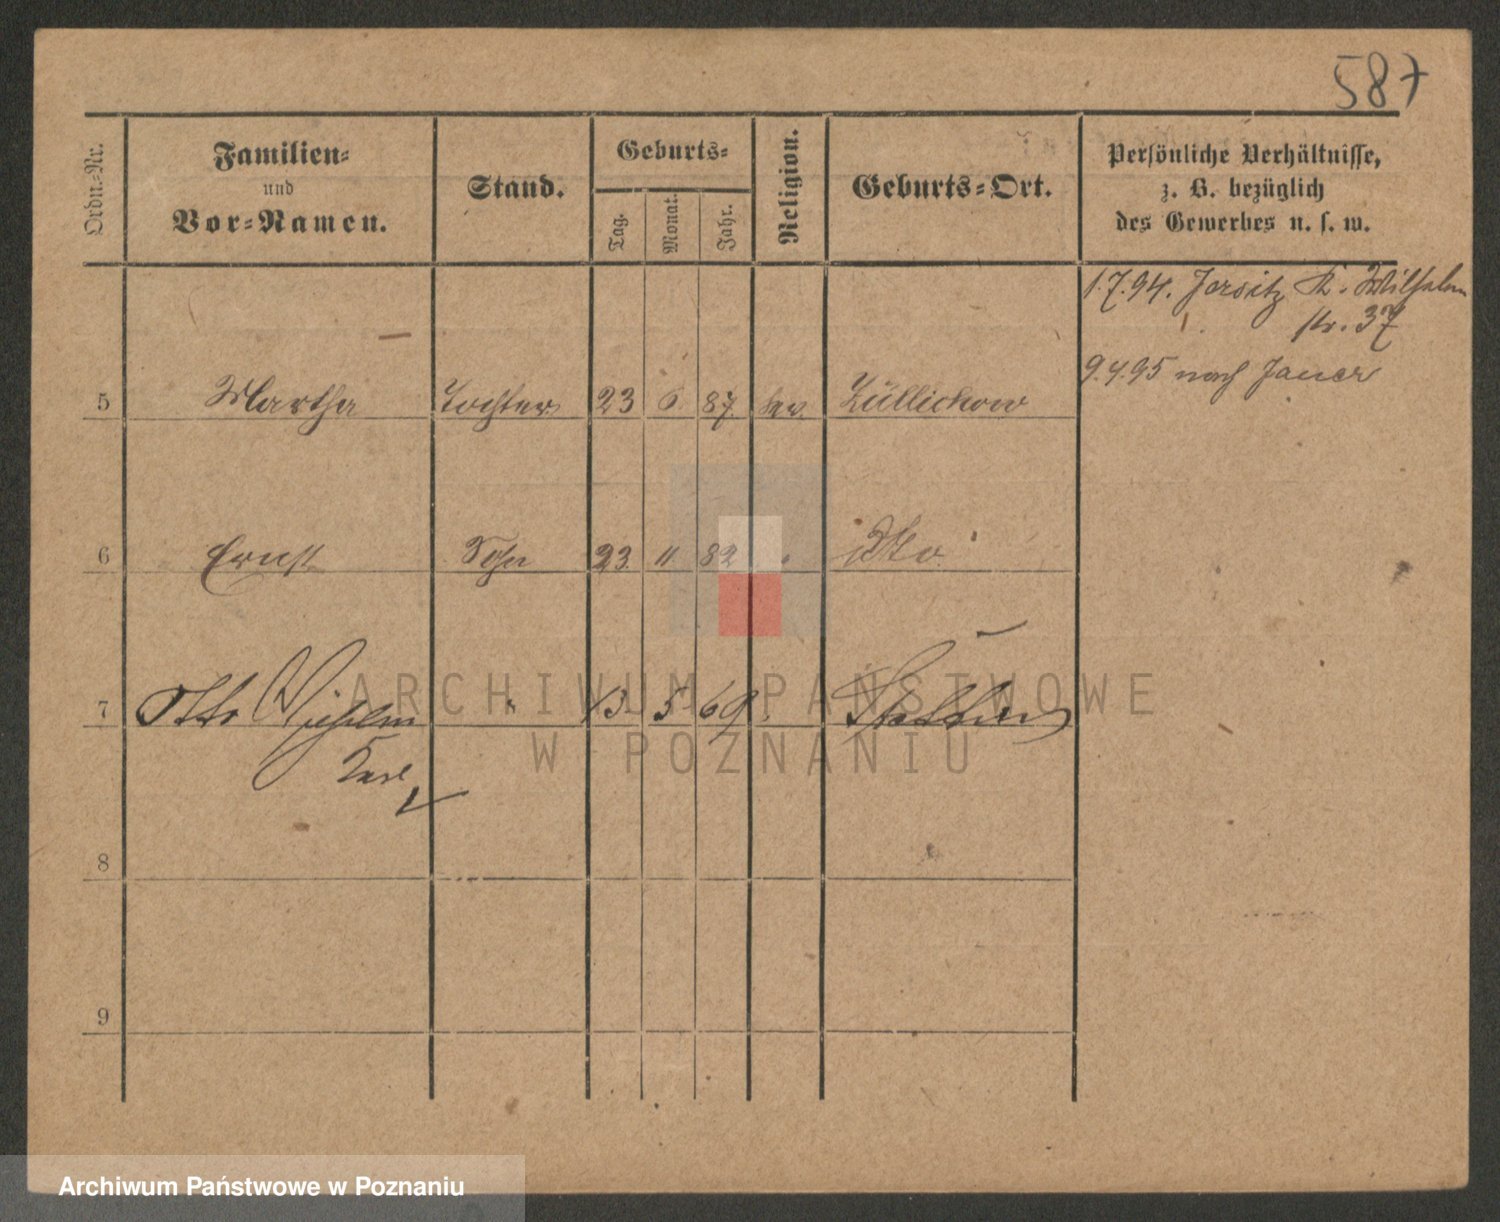 587
Ordn.-Nr.
Familien-
und
Vor-Namen.
Stand.
Geburts-
Tag.
Monat.
Jahr.
Religion.
Geburts-Ort.
Persönliche Verhältnisse,
z. B. bezüglich
des Gewerbes u. s. w.
1.7.94. Jersitz K. Wilhelm
str. 37
9.4.95 nach Jauer
5 Martha Tochter 23 6 87 ev. Züllichow
6 Ernst Sohn 23. 11 82 " dto
7 Otto Wilhelm " 13. 5. 69. Stettin
Karl
8
9
ARCHIWUM PAŃSTWOWE
W POZNANIU
Archiwum Państwowe w Poznaniu